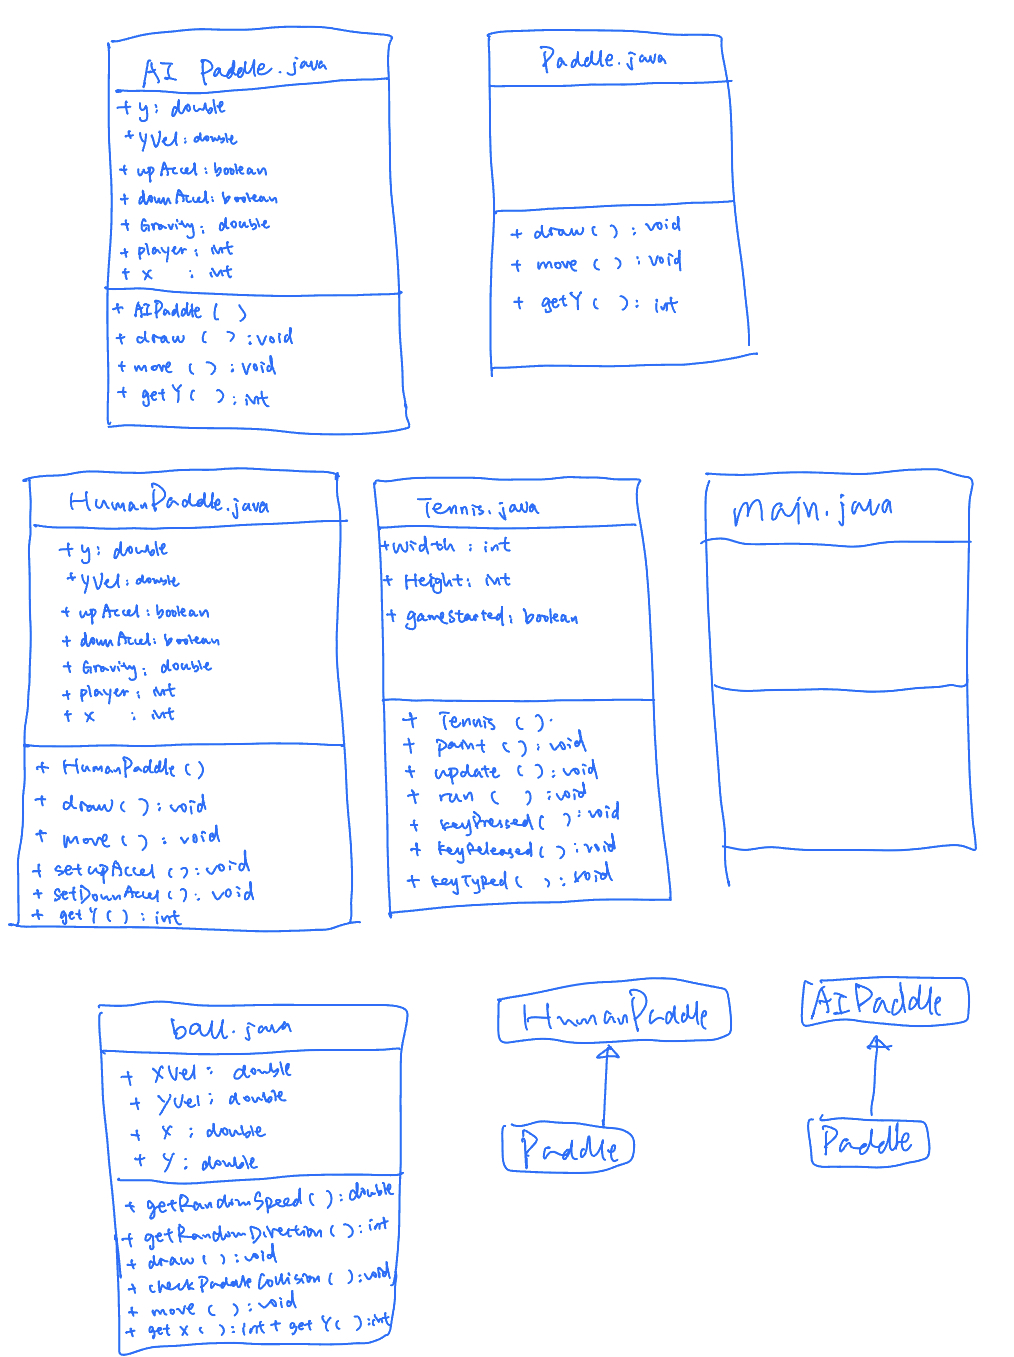 AI Paddle.java
+ y: double
+ YVel: double
+ upAccel: boolean
+ downAccel: boolean
+ Gravity: double
+ player: int
+ x : int
+ AIPaddle ( )
+ draw ( ) : void
+ move ( ) : void
+ getY ( ) : int
Paddle.java
+ draw ( ) : void
+ move ( ) : void
+ getY ( ) : int
HumanPaddle.java
+ y: double
+ YVel: double
+ upAccel: boolean
+ downAccel: boolean
+ Gravity: double
+ player: int
+ x : int
+ HumanPaddle ( )
+ draw ( ) : void
+ move ( ) : void
+ setupAccel ( ) : void
+ setDownAccel ( ) : void
+ getY ( ) : int
Tennis.java
+ width : int
+ Height: int
+ gamestarted: boolean
+ Tennis ( ).
+ paint ( ) : void
+ update ( ) : void
+ run ( ) : void
+ keyPressed ( ) : void
+ keyReleased ( ) : void
+ keyTyped ( ) : void
main.java
ball.java
+ XVel: double
+ YVel: double
+ X : double
+ Y : double
+ getRandomSpeed ( ) : double
+ getRandomDirection ( ) : int
+ draw ( ) : void
+ checkPaddleCollision ( ) : void
+ move ( ) : void
+ get X ( ) : int + get Y ( ) : int
HumanPaddle
Paddle
AIPaddle
Paddle